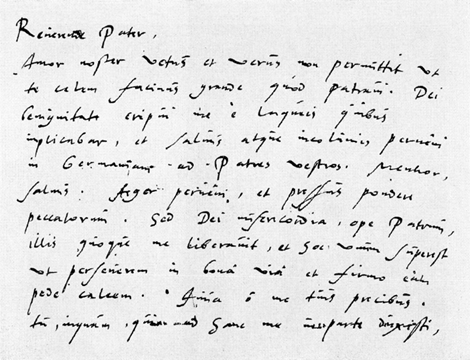 Reverende Pater,
Amor noster vetus et verus non permittit ut
te celem facinus grande quod patravi. Dei
benignitate eripui me è laqueis quibus
implicabar, et salvus atque incolumis perveni
in Germaniam ad Patres vestros. Mentior,
salvus: Aeger perveni, et pressus pondere
peccatorum. Sed Dei misericordia, ope Patrum,
illis quoque me liberavit, et hoc unum superest
ut perseverem in bona via et firmo eam
pede calcem. Adiuva me tuis precibus.
tu, inquam, me